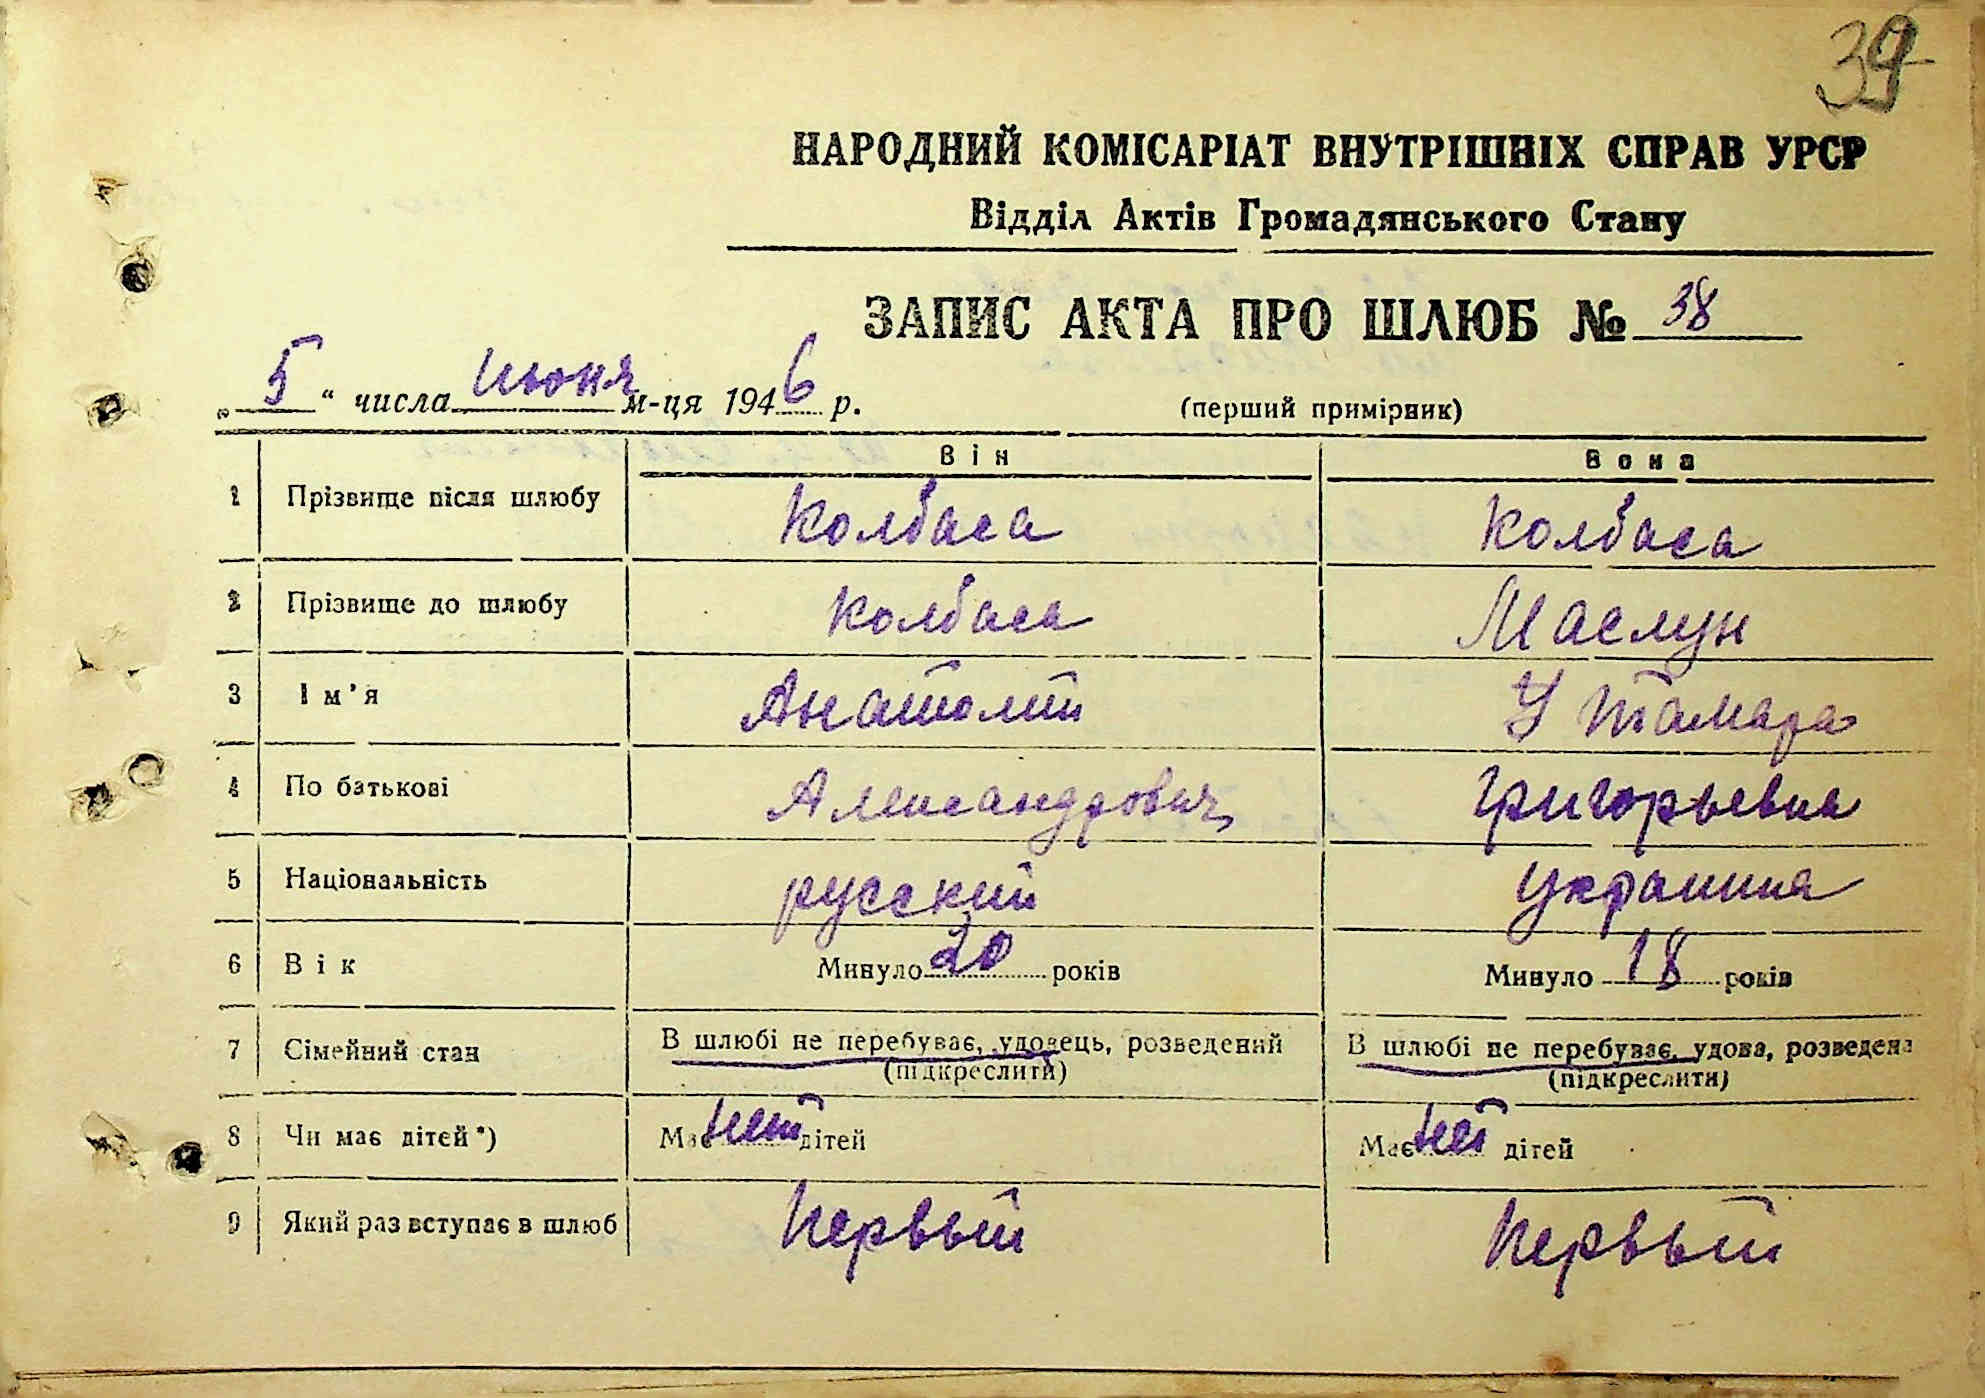 39
НАРОДНИЙ КОМІСАРІАТ ВНУТРІШНІХ СПРАВ УРСР
Відділ Актів Громадянського Стану
ЗАПИС АКТА ПРО ШЛЮБ № 38
„ 5 “ числа июня м-ця 1946 р. (перший примірник)
Він Вона
1 Прізвище після шлюбу Колбаса Колбаса
2 Прізвище до шлюбу Колбаса Маслун
3 Ім’я Анатолий Тамара
4 По батькові Александрович Григорьевна
5 Національність русский украинка
6 Вік Минуло 20 років Минуло 18 років
7 Сімейний стан В шлюбі не перебуває, удовець, розведений В шлюбі не перебуває, удова, розведена
(підкреслити) (підкреслити)
8 Чи має дітей*) Має нет дітей Має нет дітей
9 Який раз вступає в шлюб Первый Первый